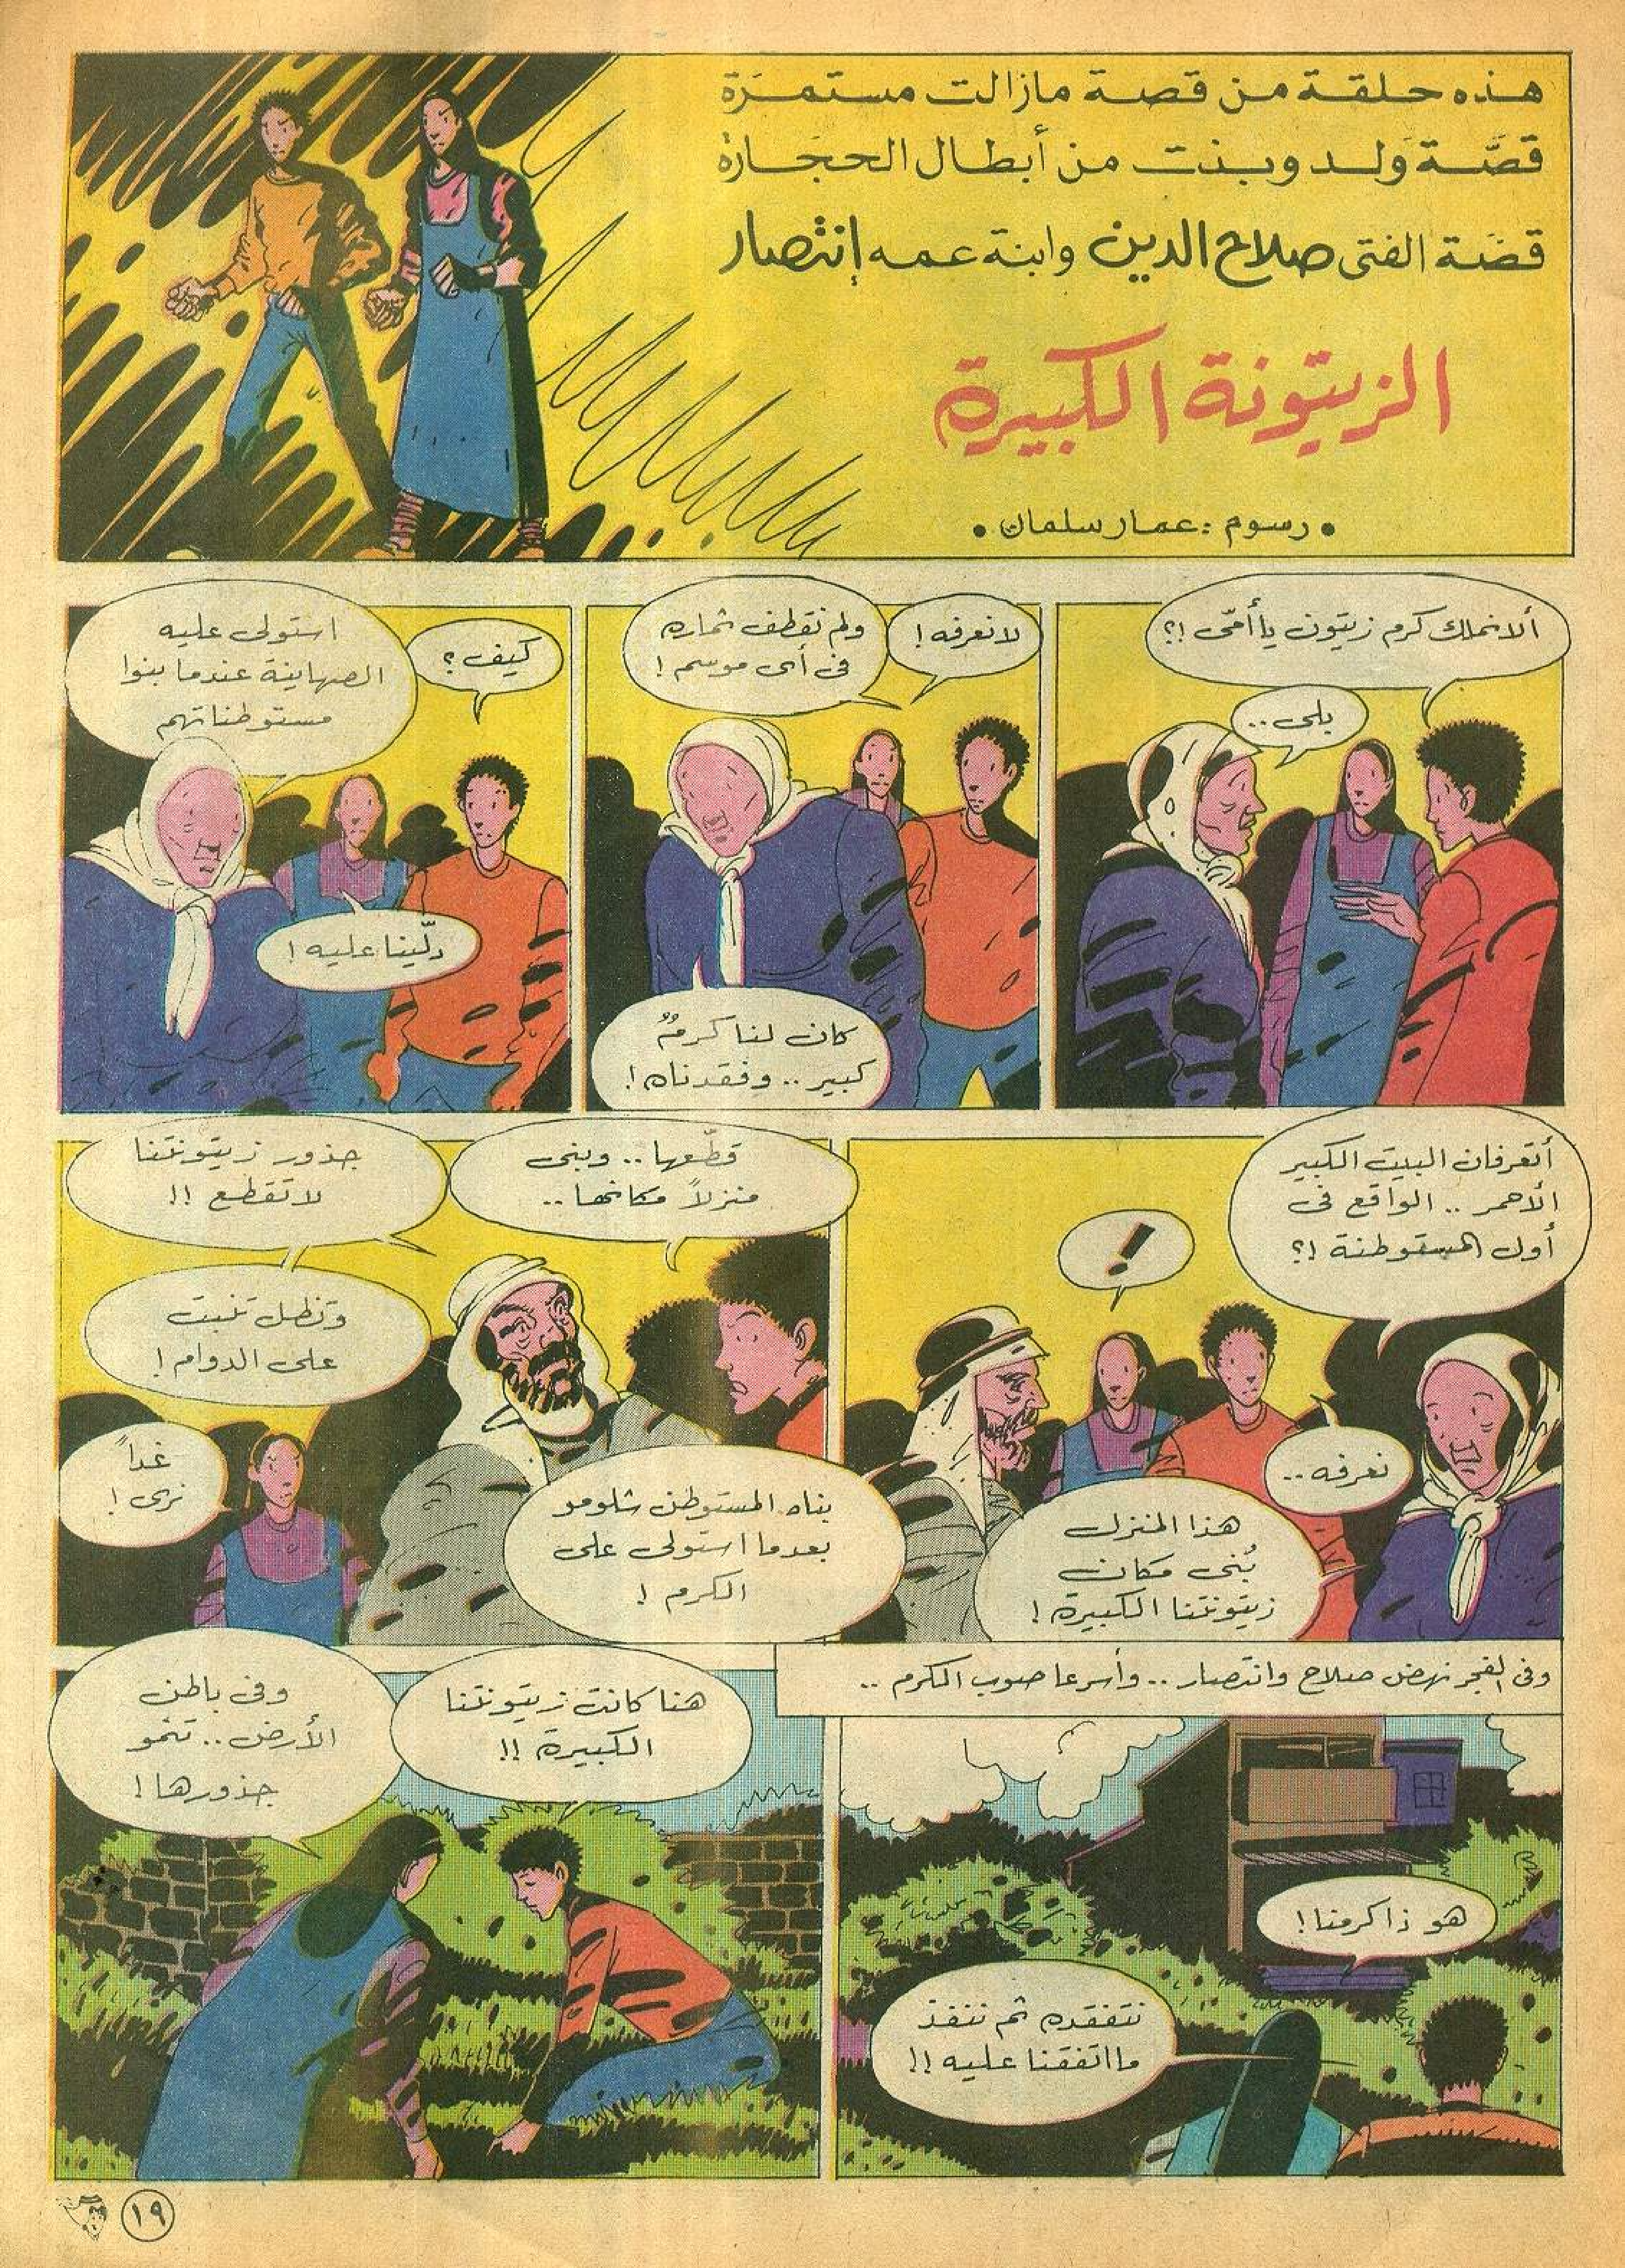 هذه حلقة من قصة مازالت مستمرَة
قصَّة وَلد وبنت من أبطال الحجَارة
قصَة الفتى صلاح الدين وابنة عمه إنتصار
الزيتونة الكبيرة
• رسوم : عمار سلمان •
ألا نملك كرم زيتون يا أمّى !؟
بلى ..
لا نعرفه !
ولم نقطف ثماره
فى أى موسم !
كان لنا كرمٌ
كبير .. وفقدناه !
كيف ؟
استولى عليه
الصهاينة عندما بنوا
مستوطناتهم
دلّينا عليه !
أتعرفان البيت الكبير
الأحمر .. الواقع فى
أول المستوطنة !؟
!
نعرفه ..
هذا المنزل
بُنى مكان
زيتونتنا الكبيرة !
قطّعها .. وبنى
منزلاً مكانها ..
جذور زيتونتنا
لا تقطع !!
وتظل تنبت
على الدوام !
بناه المستوطن شلومو
بعدما استولى على
الكرم !
غداً
نرى !
وفى الفجر نهض صلاح وانتصار .. وأسرعا صوب الكرم ..
هو ذا كرمنا !
نتفقده ثم ننفذ
ما اتفقنا عليه !!
هنا كانت زيتونتنا
الكبيرة !!
وفى باطن
الأرض .. تنمو
جذورها !
١٩